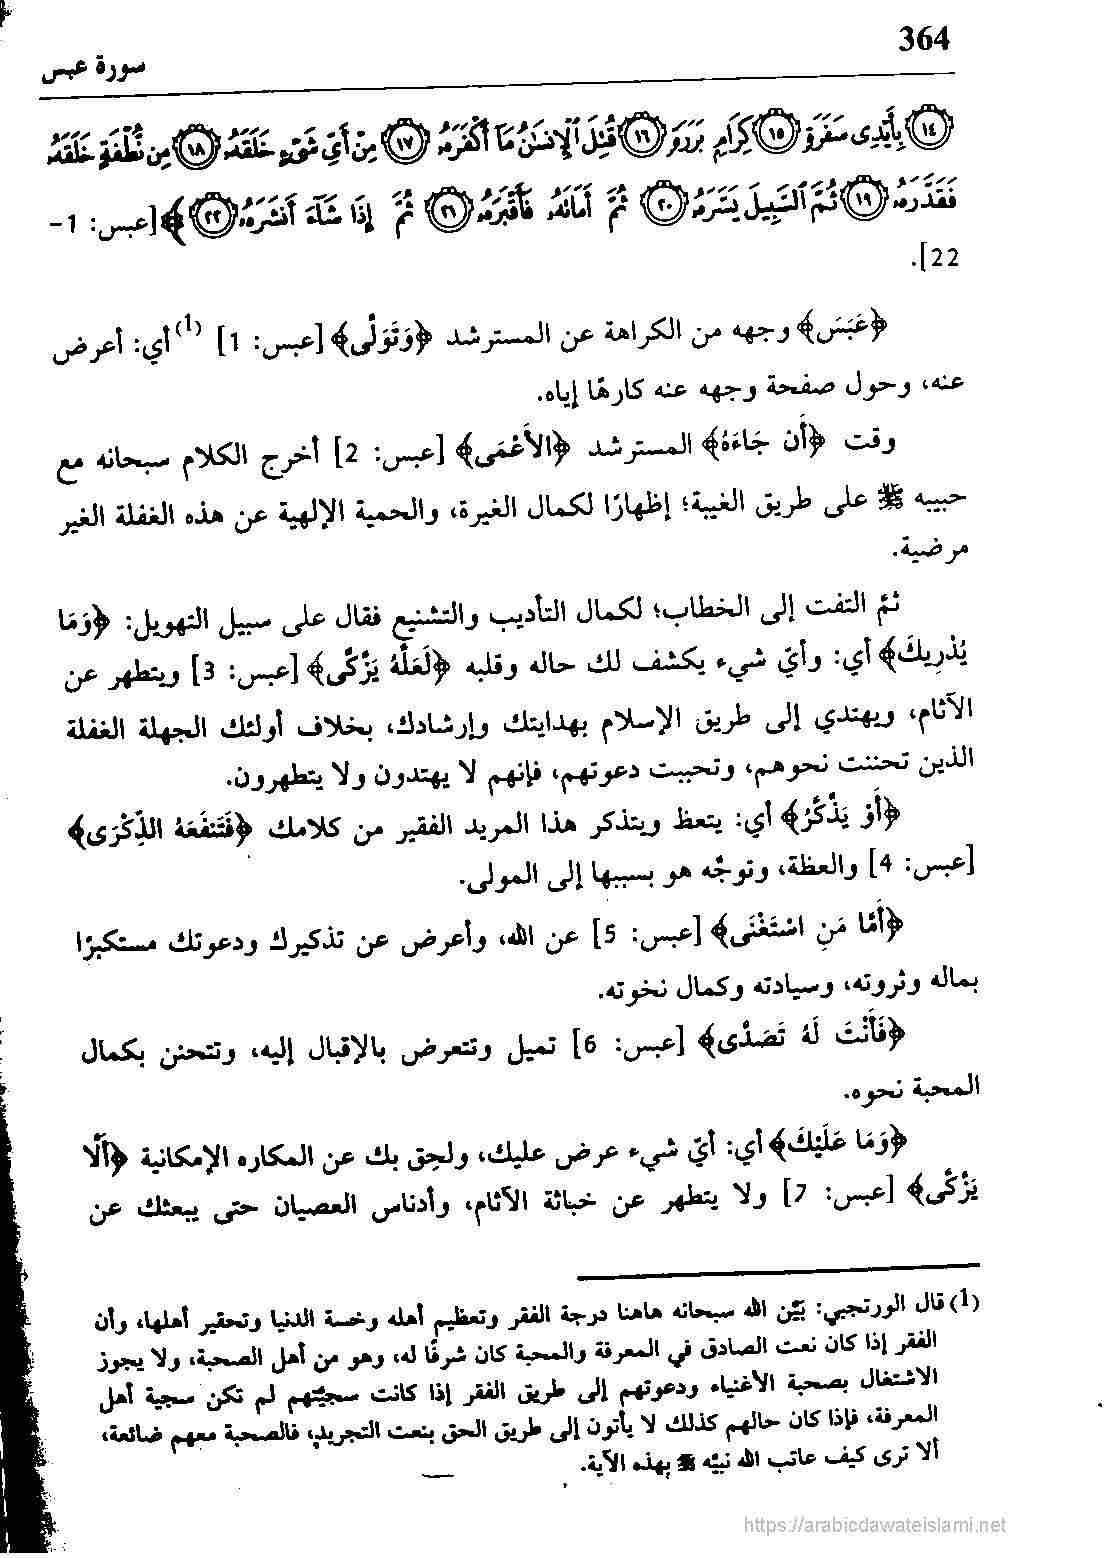 364
سورة عبس
﴿١٤﴾ بِأَيْدِى سَفَرَةٍ ﴿١٥﴾ كِرَامٍ بَرَرَةٍ ﴿١٦﴾ قُتِلَ ٱلْإِنسَٰنُ مَآ أَكْفَرَهُۥ ﴿١٧﴾ مِنْ أَىِّ شَىْءٍ خَلَقَهُۥ ﴿١٨﴾ مِن نُّطْفَةٍ خَلَقَهُۥ
فَقَدَّرَهُۥ ﴿١٩﴾ ثُمَّ ٱلسَّبِيلَ يَسَّرَهُۥ ﴿٢٠﴾ ثُمَّ أَمَاتَهُۥ فَأَقْبَرَهُۥ ﴿٢١﴾ ثُمَّ إِذَا شَآءَ أَنشَرَهُۥ ﴿٢٢﴾﴾ [عبس: 1-
22].
﴿عَبَسَ﴾ وجهه من الكراهة عن المسترشد ﴿وَتَوَلَّى﴾ [عبس: 1] (1) أي: أعرض
عنه، وحول صفحة وجهه عنه كارهًا إياه.
وقت ﴿أَن جَاءَهُ﴾ المسترشد ﴿الأَعْمَى﴾ [عبس: 2] أخرج الكلام سبحانه مع
حبيبه ﷺ على طريق الغيبة؛ إظهارًا لكمال الغيرة، والحمية الإلهية عن هذه الغفلة الغير
مرضية.
ثمَّ التفت إلى الخطاب؛ لكمال التأديب والتشنيع فقال على سبيل التهويل: ﴿وَمَا
يُدْرِيكَ﴾ أي: وأيّ شيء يكشف لك حاله وقلبه ﴿لَعَلَّهُ يَزَّكَّى﴾ [عبس: 3] ويتطهر عن
الآثام، ويهتدي إلى طريق الإسلام بهدايتك وإرشادك، بخلاف أولئك الجهلة الغفلة
الذين تحننت نحوهم، وتحببت دعوتهم، فإنهم لا يهتدون ولا يتطهرون.
﴿أَوْ يَذَّكَّرُ﴾ أي: يتعظ ويتذكر هذا المريد الفقير من كلامك ﴿فَتَنفَعَهُ الذِّكْرَى﴾
[عبس: 4] والعظة، وتوجَّه هو بسببها إلى المولى.
﴿أَمَّا مَنِ اسْتَغْنَى﴾ [عبس: 5] عن الله، وأعرض عن تذكيرك ودعوتك مستكبرًا
بماله وثروته، وسيادته وكمال نخوته.
﴿فَأَنْتَ لَهُ تَصَدَّى﴾ [عبس: 6] تميل وتتعرض بالإقبال إليه، وتتحنن بكمال
المحبة نحوه.
﴿وَمَا عَلَيْكَ﴾ أي: أيّ شيء عرض عليك، ولحِق بك عن المكاره الإمكانية ﴿أَلَّا
يَزَّكَّى﴾ [عبس: 7] ولا يتطهر عن خباثة الآثام، وأدناس العصيان حتى يبعثك عن
(1) قال الورتجبي: بيَّن الله سبحانه هاهنا درجة الفقر وتعظيم أهله وخسة الدنيا وتحقير أهلها، وأن
الفقر إذا كان نعت الصادق في المعرفة والمحبة كان شرفًا له، وهو من أهل الصحبة، ولا يجوز
الاشتغال بصحبة الأغنياء ودعوتهم إلى طريق الفقر إذا كانت سجيّتهم لم تكن سجية أهل
المعرفة، فإذا كان حالهم كذلك لا يأتون إلى طريق الحق بنعت التجريد، فالصحبة معهم ضائعة،
ألا ترى كيف عاتب الله نبيَّه ﷺ بهذه الآية.
https://arabicdawateislami.net